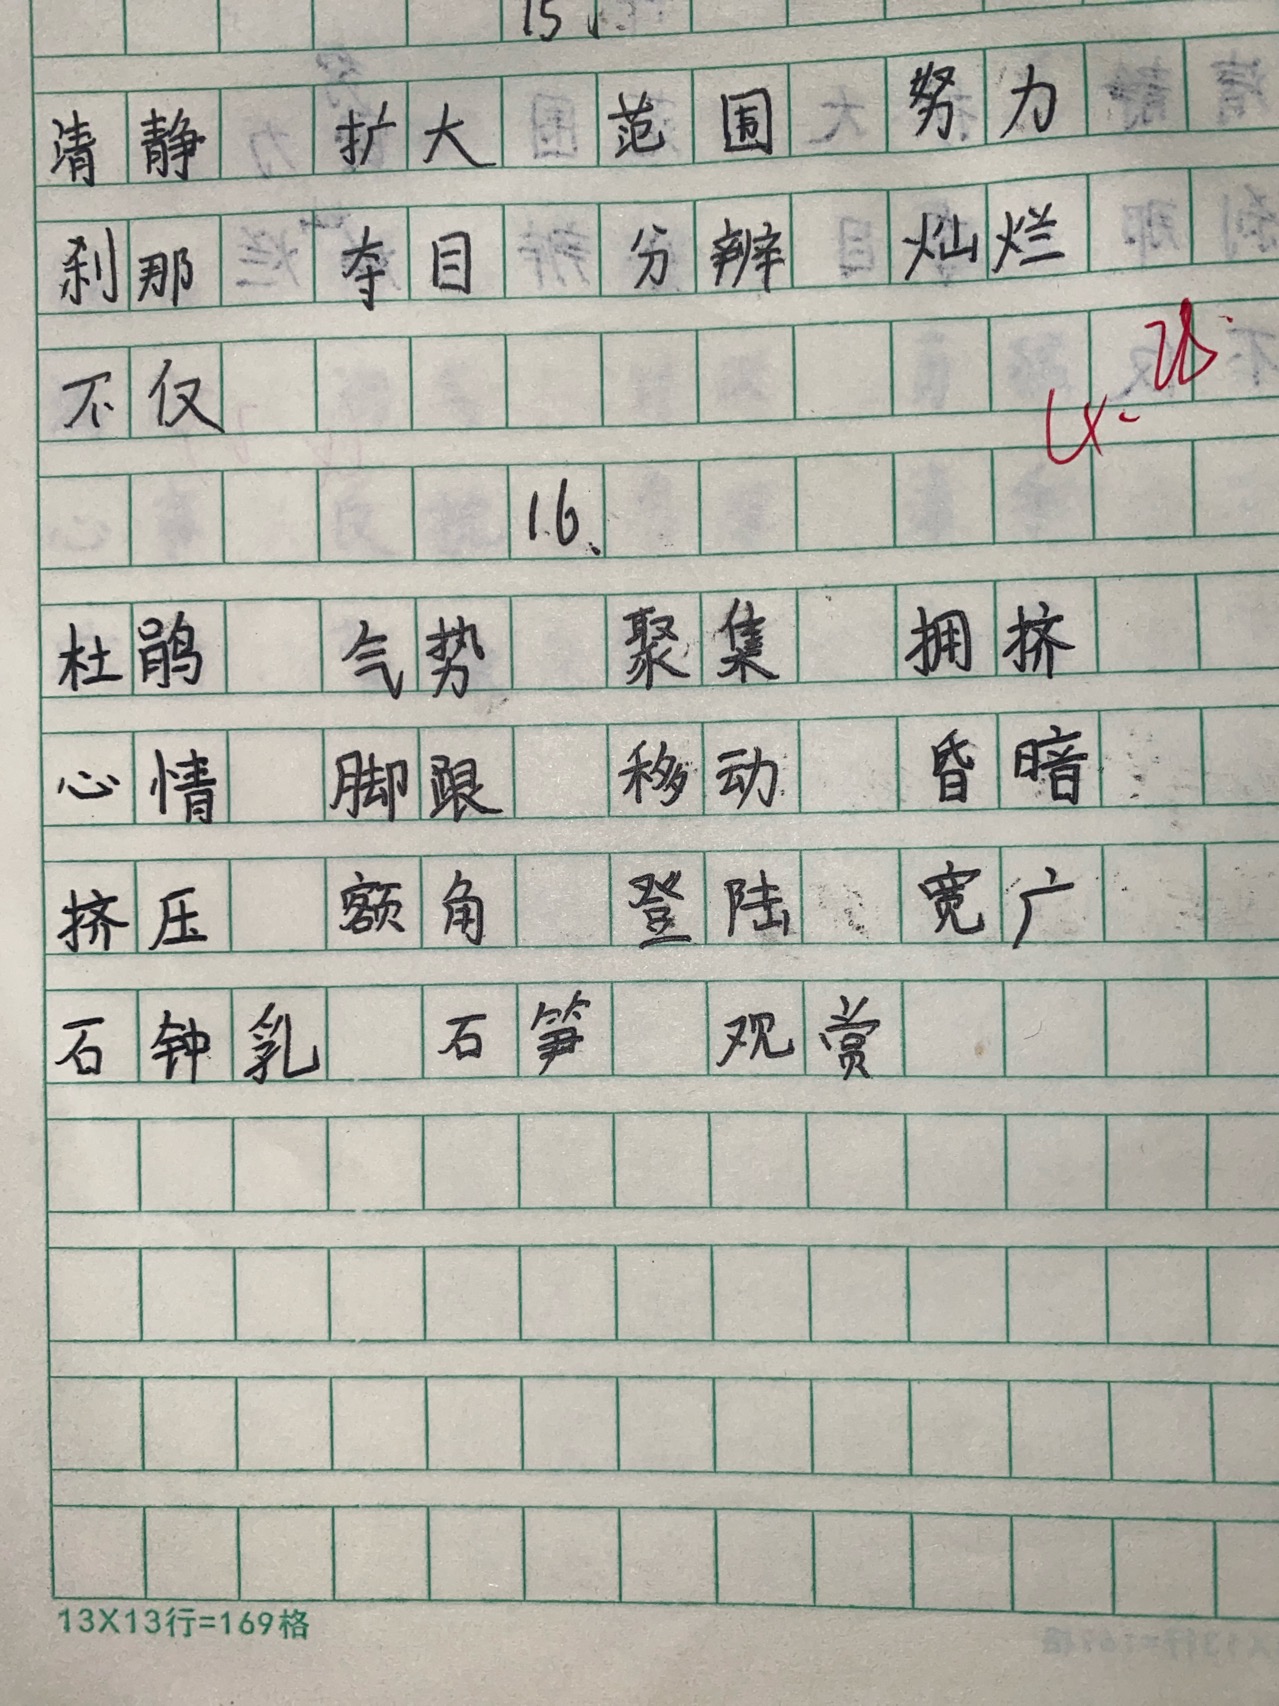 15、
清静 扩大 范围 努力
刹那 夺目 分辨 灿烂
不仅
16、
杜鹃 气势 聚集 拥挤
心情 脚跟 移动 昏暗
挤压 额角 登陆 宽广
石钟乳 石笋 观赏
13X13行=169格